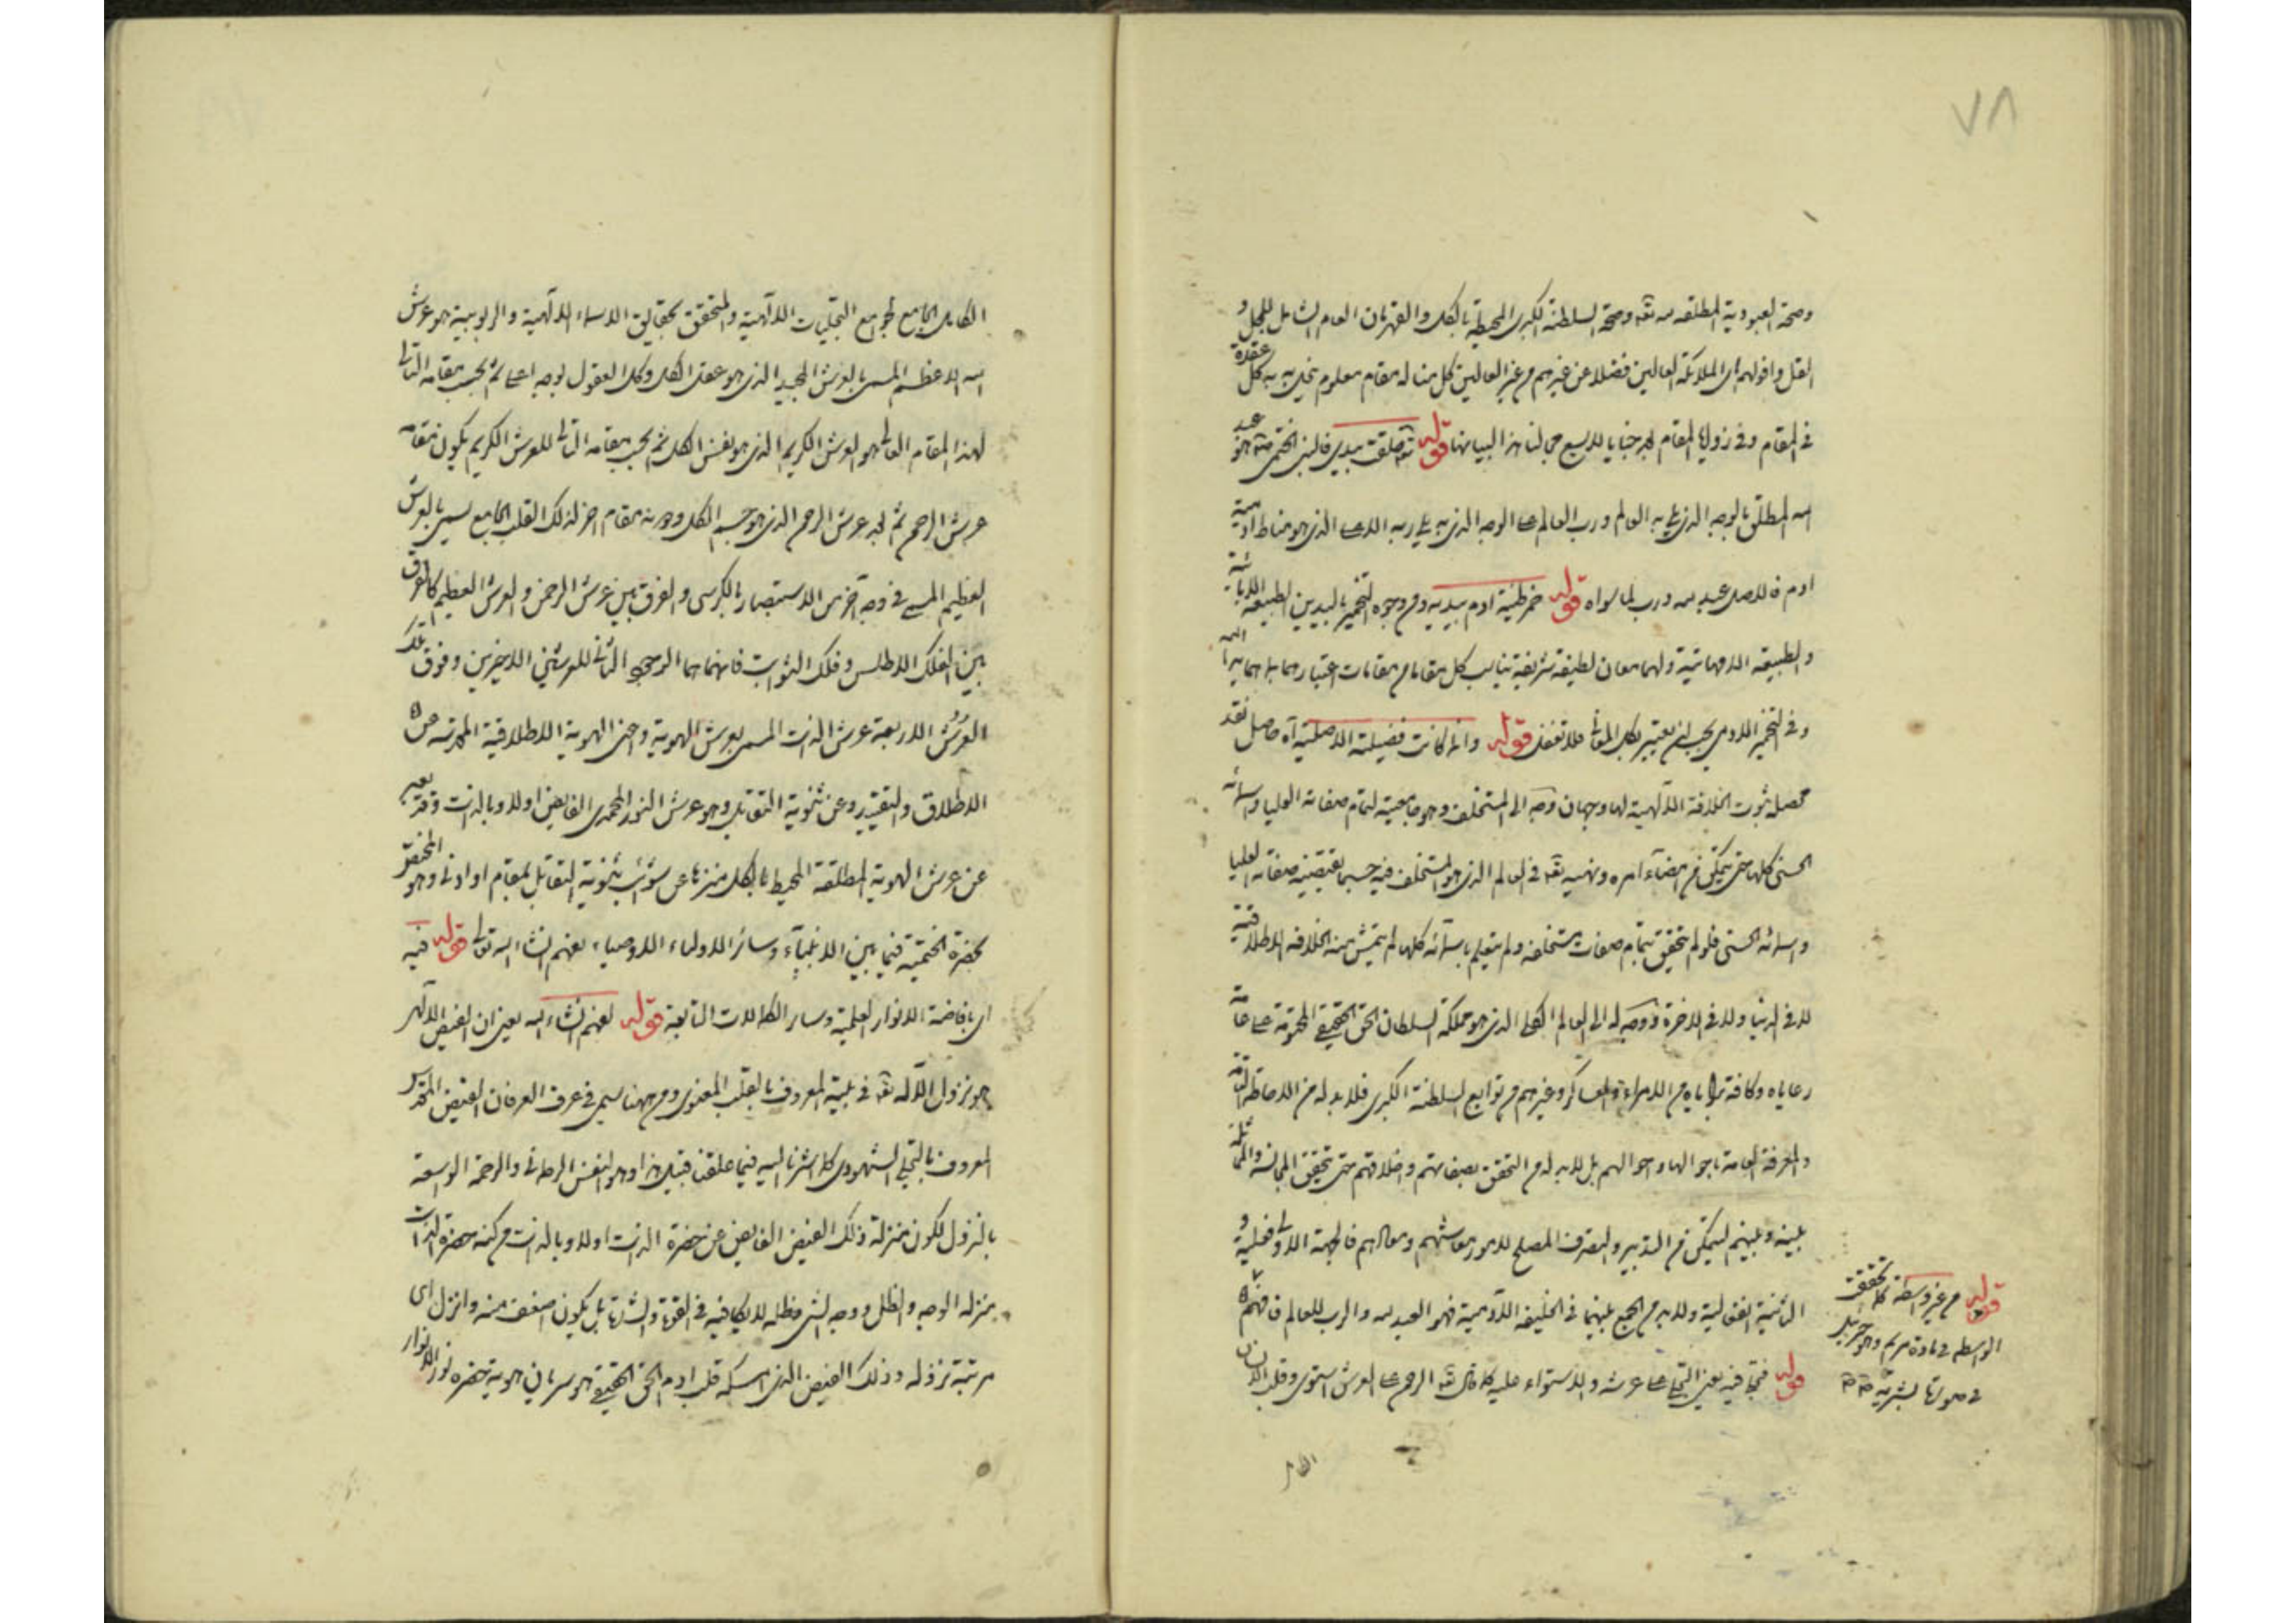 ٧٨
وصحة العبودية المطلقة لله تعه وصحة السلطنة الكبرى المحيطة بالكل والقهرمان العام الشامل للجل و
القل واقولهم اى الملائكة العالين فضلا عن غيرهم من غير العالين كل منا له مقام معلوم به به كل عقدة
فى المقام وفى زوايا المقام بعد خبايا لا يسع مجالنا هذا البيانها قوله تعه خلقت بيدى فالنبى الختمى هو عبد
الله المطلق بالوجه الذى يلى به العالم ورب العالم على الوجه الذى به يلى ربه الاعلى الذى هو مناط ادمية
ادم فالاصل عبد لله ورب لما سواه قوله خمر طينة ادم بيديه ومن وجوه التخمير باليدين الطبيعة الابائية
والطبيعة الامهاتية ولهما معان لطيفة شريفة يناسب كل مقام من مقامات اعتبارهما
وفى التخمير الادمى يجب ان يعتبر بكل المعانى فلا تغفل قوله وانه كانت فضيلته الاصلية آه حاصل نقد
محصله ثبوت الخلافة الالهية لها وجهان وجه الى المستخلف وهو جامعيته لتمام صفاته العليا واسمائه
الحسنى كلها حتى يتمكن من امضاء امره ونهيه تعه فى العالم الذى هو المستخلف فيه حسبما يقتضيه صفاته العليا
واسمائه الحسنى فلو لم يتحقق بتمام صفات مستخلفه ولم يتعلم باسمائه كلها لم يتمش منه الخلافة الاطلاقية
لا فى الدنيا ولا فى الاخرة ووجه له الى العالم الكلى الذى هو مملكة السلطان الحق الحقيقى المحتوية على عامة
رعاياه وكافة براياه من الامراء والعساكر وغيرهم من توابع السلطنة الكبرى فلا بد له من الاحاطة التامة
والمعرفة العامة باحوالها واحوالهم بل لا بد له من التحقق بصفاتهم واخلاقهم حتى يتحقق المجانسة والمماثلة
بينه وبينهم ليتمكن من التدبير والتصرف المصلح لامور معاشهم ومعادهم فالجهة الاولى فعلية و
الثانية انفعالية ولا بد من الجمع بينهما فى الخليفة الادمية فهو العبد لله والرب للعالم فافهم
قوله فتجلى فيه يعنى التجلى على عرشه والاستواء عليه كما قال تعه الرحمن على العرش استوى وقلب الانسان
قوله من غير واسطة كما تحققت
الواسطة فى مادة مريم وهو جبرئيل
فى صورتها البشرية
الكامل
الكامل الجامع لجوامع التجليات الالهية والمتحقق بحقايق الاسماء الالهية والربوبية هو عرش
الله الاعظم المسمى بالعرش المجيد الذى هو عقل الكل وكل العقول بوجه اعلى ثم بحسب مقامه التالى
لهذا المقام العالى هو العرش الكريم الذى هو نفس الكل ثم بحسب مقامه التالى للعرش الكريم يكون مقامه
عرش الرحمن ثم بعد عرش الرحمن الذى هو جسم الكل ودونه مقام اخر لذلك القلب الجامع يسمى بالعرش
العظيم المسمى فى وجه آخر من الاستبصار بالكرسى والفرق بين عرش الرحمن والعرش العظيم كالفرق
بين الفلك الاطلس وفلك الثوابت فانهما هما الوجه الثانى للعرشين الاخيرين وفوق تلك
العروش الاربعة عرش الذات المسمى بعرش الهوية واعنى الهوية الاطلاقية المقدسة من
الاطلاق والتقييد وعن ثنوية التقابل وهو عرش النور المحمدى الفايض اولا وبالذات وقد يعبر
عن عرش الهوية المطلقة المحيط بالكل منزها عن شوائب ثنوية التقابل بمقام او ادنى وهو المختص
بحضرة الختمية فيما بين الانبياء وسائر الاولياء الاوصياء يعنهم انشاء الله تعالى قوله فيه
اى بافاضة الانوار العلمية وسائر الكمالات التابعة قوله لعنهم انشاء الله يعنى ان الفيض الالهى
هو نزول الاله تعه فى بيته المعروف بالقلب المعنوى ومن ههنا يسمى فى عرف العرفان الفيض المقدس
المعروف بالتجلى الشهودى كما اشرنا اليه فيما علقنا قبيل هذا وهو النفس الرحمانى والرحمة الواسعة
بالنزول لكون منزلة ذلك الفيض الفايض عن حضرة الذات اولا وبالذات من كنه حضرة الذات
بمنزلة الوجه والظل ووجه الشئ وظله لا يكافيه فى القوة والشدة بل يكون اضعف منه وانزل اى
مرتبة نزوله وذلك الفيض الذى اسكه قلب ادم الحق الحقيقى هو سريان هوية حضرة نور الانوار